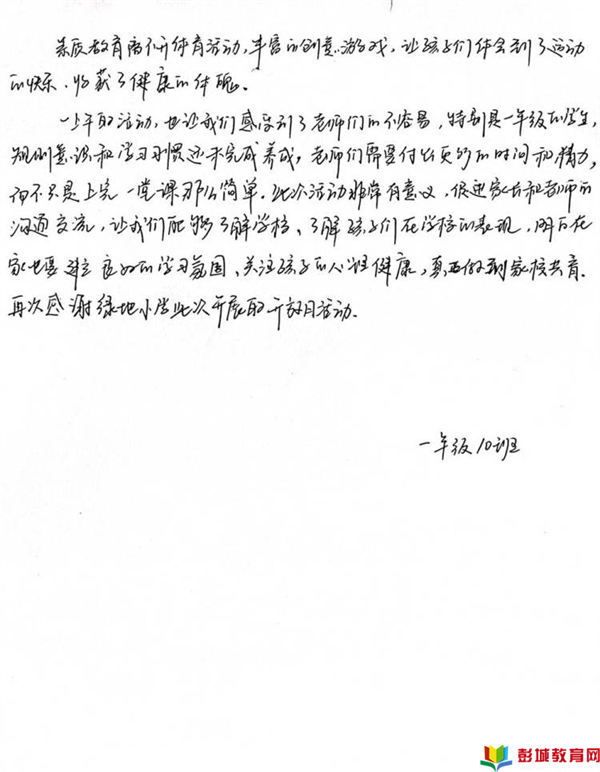 素质教育离不开体育活动,丰富的创意游戏,让孩子们体会到了运动
的快乐,收获了健康的体魄。
一上午的活动,也让我们感受到了老师们的不容易,特别是一年级的学生,
规则意识和学习习惯还未完成养成,老师们需要付出更多的时间和精力,
而不只是上完一堂课那么简单。此次活动非常有意义,促进家长和老师的
沟通交流,让我们能够了解学校、了解孩子们在学校的表现,明白在
家也要建立良好的学习氛围、关注孩子的心理健康,真正做到家校共育。
再次感谢绿地小学此次开展的开放日活动.
一年级10班
彭城教育网